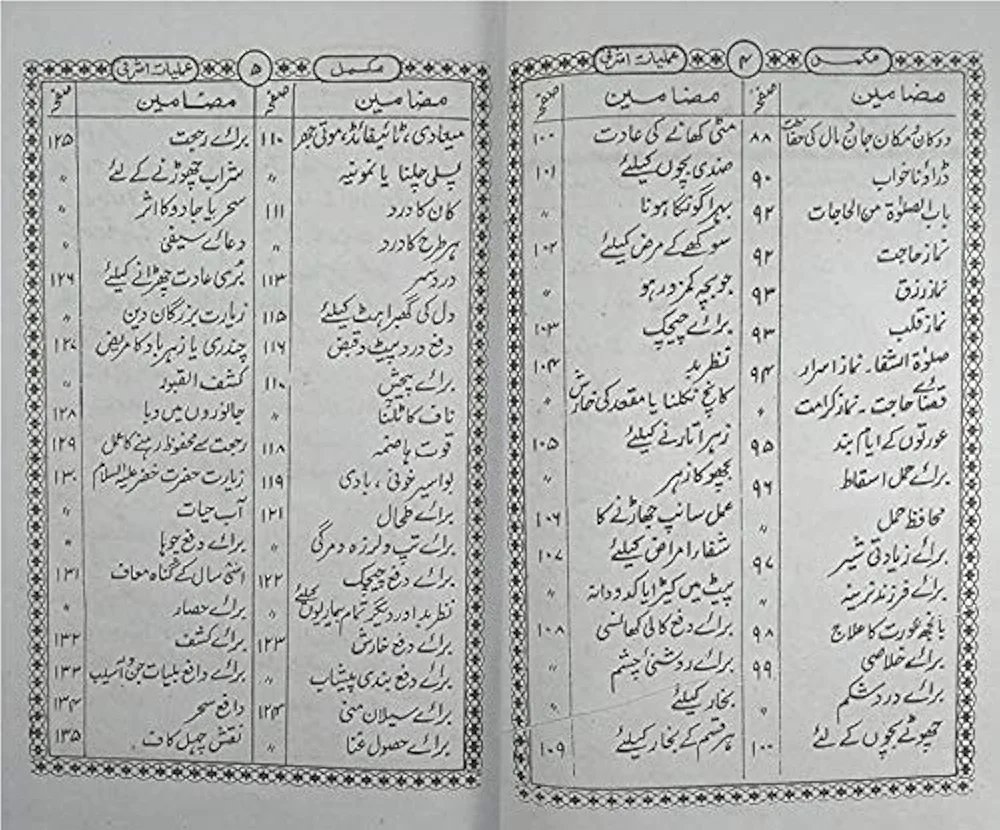 مکمل ۴ عملیات اشرفی
مضامین صفحہ
دوکان مکان جان مال کی حفاظت ۸۸
ڈراؤنا خواب ۹۰
باب الصلوٰۃ من الحاجات ۹۲
نماز حاجت ۹۲
نماز رزق ۹۳
نماز قلب ۹۳
صلوٰۃ الشفا۔ نماز اسرار ۹۴
قضائے حاجت۔ نماز کرامت 〃
عورتوں کے ایام بند ۹۵
برائے حمل اسقاط ۹۶
محافظ حمل 〃
برائے زیادتی شیر ۹۷
برائے فرزند نرینہ 〃
بانجھ عورت کا علاج ۹۸
برائے خلاصی ۹۹
برائے درد شکم 〃
چھوٹے بچوں کے لئے ۱۰۰
مضامین صفحہ
مٹی کھانے کی عادت ۱۰۰
ضدی بچوں کیلئے ۱۰۱
بہرا گونگا ہونا 〃
سوکھے کے مرض کیلئے ۱۰۲
جو بچہ کمزور ہو 〃
برائے چیچک ۱۰۳
نظر بد ۱۰۴
کانچ نکلنا یا مقعد کی خارش 〃
زہر اتارنے کیلئے ۱۰۵
بچھو کا زہر 〃
عمل سانپ جھاڑنے کا ۱۰۶
شفار امراض کیلئے ۱۰۷
پیٹ میں کیڑا یا کدو دانہ 〃
برائے دفع کالی کھانسی ۱۰۸
برائے روشنئ چشم 〃
بخار کیلئے 〃
ہر قسم کے بخار کیلئے ۱۰۹
مکمل ۵ عملیات اشرفی
مضامین صفحہ
میعادی، ٹائیفائڈ، موتی جھر ۱۱۰
پسلی چلنا یا نمونیہ 〃
کان کا درد ۱۱۱
ہر طرح کا درد 〃
درد سر ۱۱۳
دل کی گھبراہٹ کیلئے ۱۱۵
دفع درد پیٹ و قبض ۱۱۶
برائے پیچش ۱۱۰
ناف کا ٹلنا 〃
قوت ہاضمہ ۱۱۸
بواسیر خونی، بادی ۱۱۹
برائے طحال ۱۲۱
برائے تپ و لرزہ و مرگی 〃
برائے دفع چیچک ۱۲۲
نظر بد اور دیگر تمام بیماریوں کیلئے
برائے دفع خارش ۱۲۳
برائے دفع بندی پیشاب 〃
برائے سیلان منی ۱۲۴
برائے حصول غنا 〃
مضامین صفحہ
برائے رجعت ۱۲۵
شراب چھوڑنے کے لئے 〃
سحر یا جادو کا اثر 〃
دعائے سیفی 〃
بُری عادت چھڑانے کیلئے ۱۲۶
زیارت بزرگان دین 〃
چندری یا زہر باد کا مریض ۱۲۷
کشف القبور 〃
جانوروں میں وبا ۱۲۸
رجعت سے محفوظ رہنے کا عمل ۱۲۹
زیارت حضرت خضر علیہ السلام ۱۳۰
آب حیات 〃
برائے دفع چوہا 〃
اسّی سال کے گناہ معاف ۱۳۱
برائے حصار 〃
برائے کشف ۱۳۲
برائے دافع بلیات جن و آسیب ۱۳۳
دافع سحر ۱۳۴
نقش چہل کاف ۱۳۵